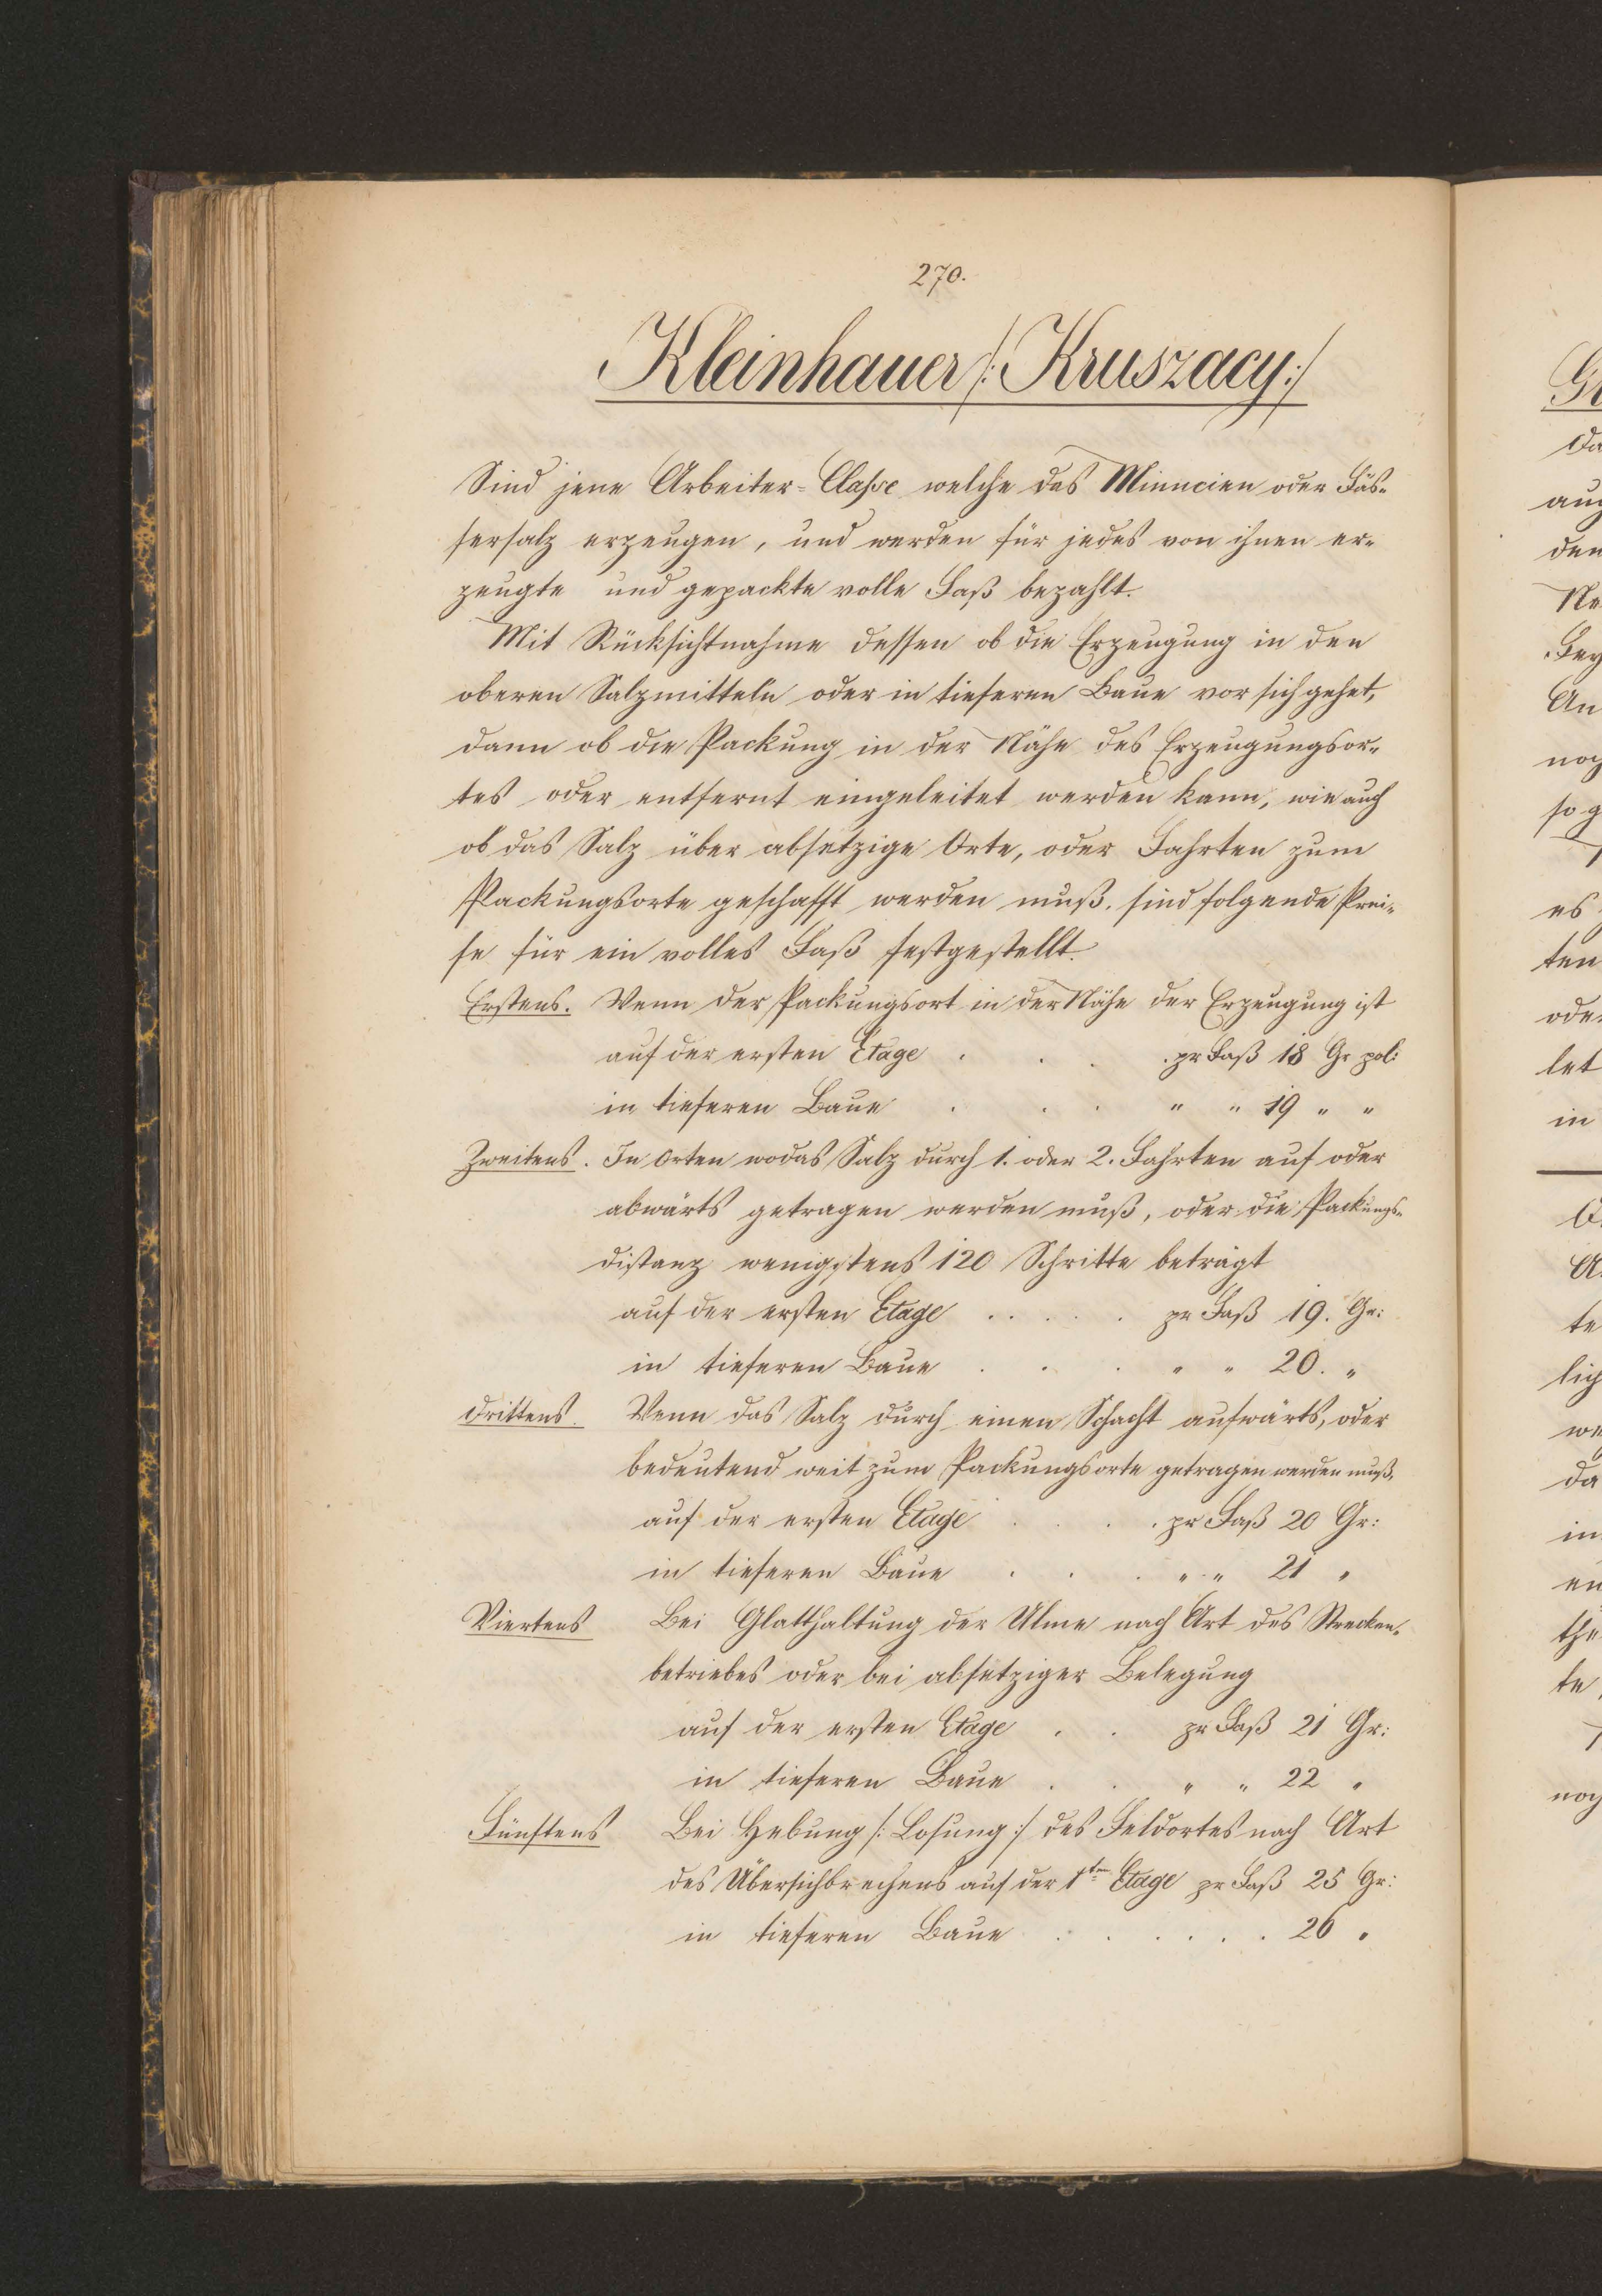 270.
Kleinhauer /: Kruszacy :/
Sind jene Arbeiter-Classe welche das Minucien oder Fäs-
sersalz erzeugen, und werden für jedes von ihnen er-
zeugte und gepackte volle Faß bezahlt.
Mit Rücksichtnahme dessen ob die Erzeugung in den
oberen Salzmitteln oder in tieferen Baue vor sich gehet,
dann ob die Packung in der Nähe des Erzeugungsor-
tes oder entfernt eingeleitet werden kann, wie auch
ob das Salz über absetzige Orte, oder Fahrten zum
Packungsorte geschafft werden muß, sind folgende Prei-
se für ein volles Faß festgestellt.
Erstens. Wenn der Packungsort in der Nähe der Erzeugung ist
auf der ersten Etage . . . . pr Faß 18 Gr pol:
in tieferen Baue . . . " " 19 " "
Zweitens. In Orten wo das Salz durch 1. oder 2. Fahrten auf oder
abwärts getragen werden muß, oder die Packungs-
distanz wenigstens 120 Schritte beträgt
auf der ersten Etage . . . . . pr Faß 19. Gr:
in tieferen Baue . . . " " 20. "
Drittens. Wenn das Salz durch einen Schacht aufwärts, oder
bedeutend weit zum Packungsorte getragen werden muß,
auf der ersten Etage . . . . pr Faß 20 Gr:
in tieferen Baue . . . " " 21 "
Viertens Bei Glatthaltung der Ulme nach Art des Strecken-
betriebes oder bei absetziger Belegung
auf der ersten Etage . . pr Faß 21 Gr:
in tieferen Baue . . " " 22 "
Fünftens Bei Hebung /: Losung :/ des Feldortes nach Art
des Übersichbrechens auf der 1ten Etage pr Faß 25 Gr:
in tieferen Baue . . . . . . 26 "